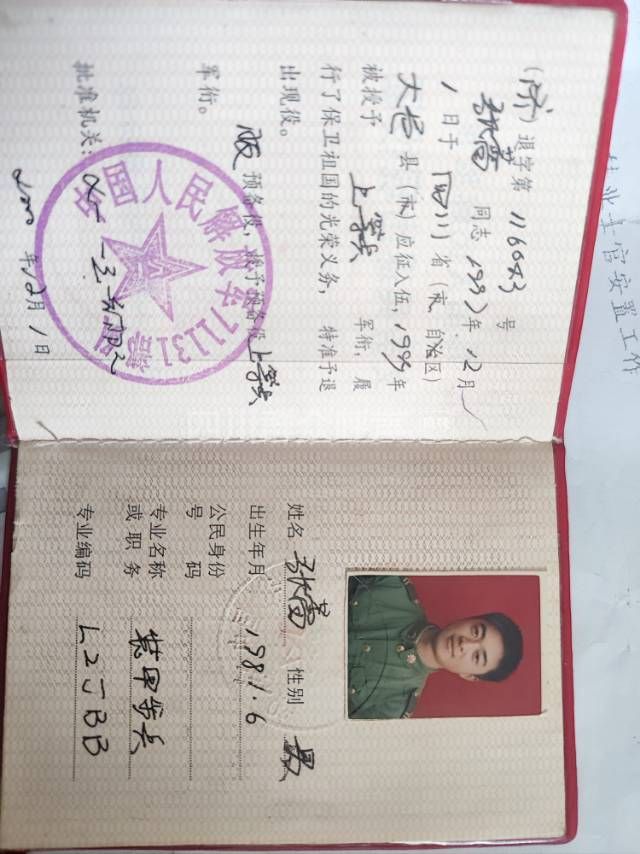 (济)退字第 116043 号
同志 1997年12月
1日于 四川 省(市、自治区)
大邑 县(市)应征入伍,1999年
被授予 上等兵 军衔,履
行了保卫祖国的光荣义务,特准予退
出现役。
服 预备役,授予预备役上等兵
军衔。
批准机关:
2000年12月1日
中国人民解放军71131部队
姓名 性别 男
出生年月 1981.6
公民身份
号 码
专业名称 装甲步兵
或职务
专业编码 L2JBB
士官安置工作